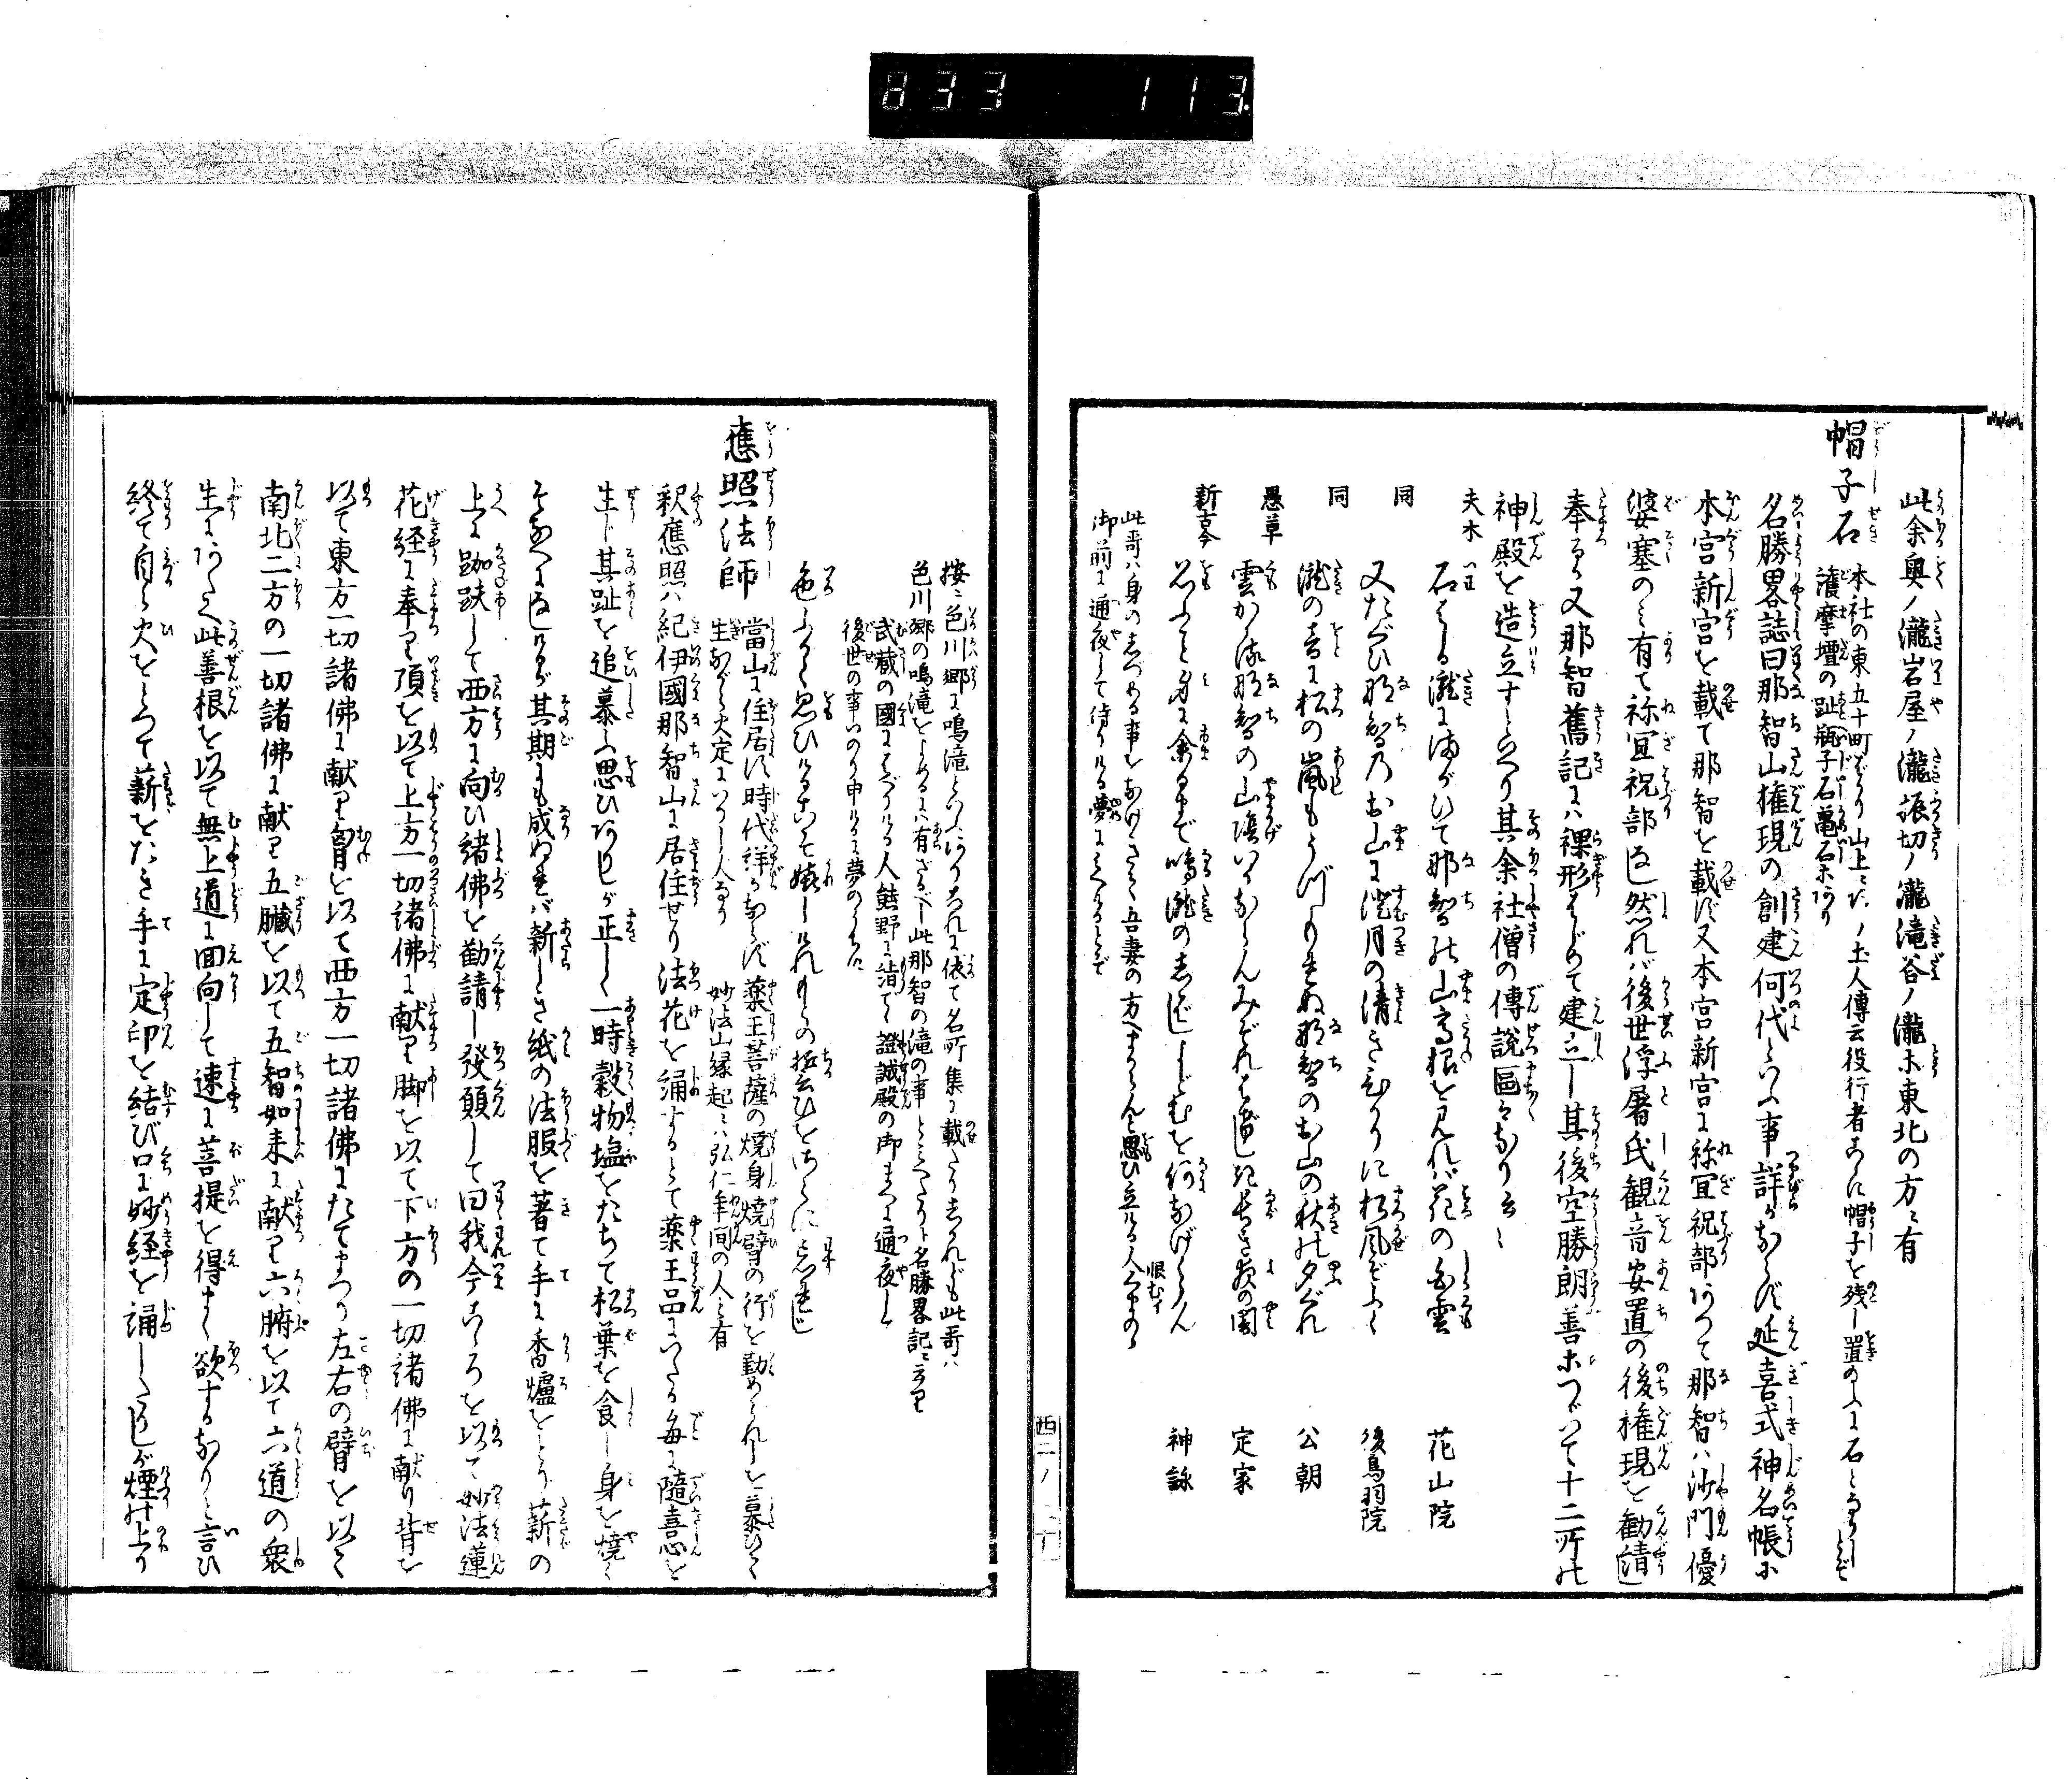 833 113
此余奥ノ瀧岩屋ノ瀧振切ノ瀧滝谷ノ瀧ホ東北の方ニ有
帽子石
本社の東五十町ばかり山上ニ有土人傳云役行者こゝに帽子を残し置のふに石となりしとぞ
護摩壇の趾瓶子石亀石ホあり
名勝畧誌曰那智山権現の創建何代といふ事詳かならず延喜式神名帳ホ
本宮新宮を載て那智を載ず又本宮新宮に祢宜祝部ありて那智ハ沙門優
婆塞のミ有て祢宜祝部なし然れバ後世浮屠氏観音安置の後権現を勧請し
奉る又那智舊記にハ裸形はじめて建立し其後空勝朗善ホつゞいて十二所の
神殿を造立すといへり其余社僧の傳説區々なり云々
夫木 石はしる瀧にまがひて那智の山高根を見れバ花の白雲 花山院
同 又たぐひ那智乃お山に澄月の清きひかりに松風ぞふく 後鳥羽院
同 瀧の音に松の嵐もうづもれぬ那智のお山の秋の夕ぐれ 公朝
愚草 雲かゝる那智の山陰いかならんみぞれはげしき長き夜の闇 定家
新古今 思ふこと身に余るまで鳴瀧のしばしよどむを何なげくらん 神詠
恨むナ
此哥ハ身のしづめる事をなげきて吾妻の方へまからんと思ひ立ける人くまの
御前に通夜して侍りける夢にみえけるとぞ
西二ノ
按ニ色川郷に鳴滝といふありこれに依て名所集に載たりしかれども此哥ハ
色川郷の鳴滝をよめるにハ有ざるべし此那智の滝の事とみえたりト名勝畧記ニ云り
武蔵の國にはべりける人熊野に詣て證誠殿の御まへに通夜して
後世の事いのり申けるに夢のうちに
色ふかく思ひけるこそ嬉しけれもとの誓ひをさらに忘れじ
應照法師
當山に住居ス時代詳かならず薬王菩薩の燒身燒臂の行を勤められしを慕ひて
生ながら火定にいりし人なり 妙法山縁起ニハ弘仁年間の人と有
釈應照ハ紀伊國那智山に居住せり法花を誦するとて薬王品にいたる毎に隨喜を
生じ其趾を追慕ふ思ひありしが正しく一時穀物塩をたちて松葉を食し身を燒く
そなへになしけるが其期にも成ぬれバ新しき紙の法服を著て手に香爐をとり薪の
上に跏趺して西方に向ひ諸佛を勧請し發願して曰我今こゝろを以て妙法蓮
花経に奉り頂を以て上方一切諸佛に献り脚を以て下方の一切諸佛に献り背を
以て東方一切諸佛に献り胷を以て西方一切諸佛にたてまつり左右の臂を以て
南北二方の一切諸佛に献り五臓を以て五智如来に献り六腑を以て六道の衆
生にあたへ此善根を以て無上道に回向して速に菩提を得まく欲するなりと言ひ
終て自ら火をとつて薪をたき手に定印を結び口に妙経を誦したりしが煙の上り